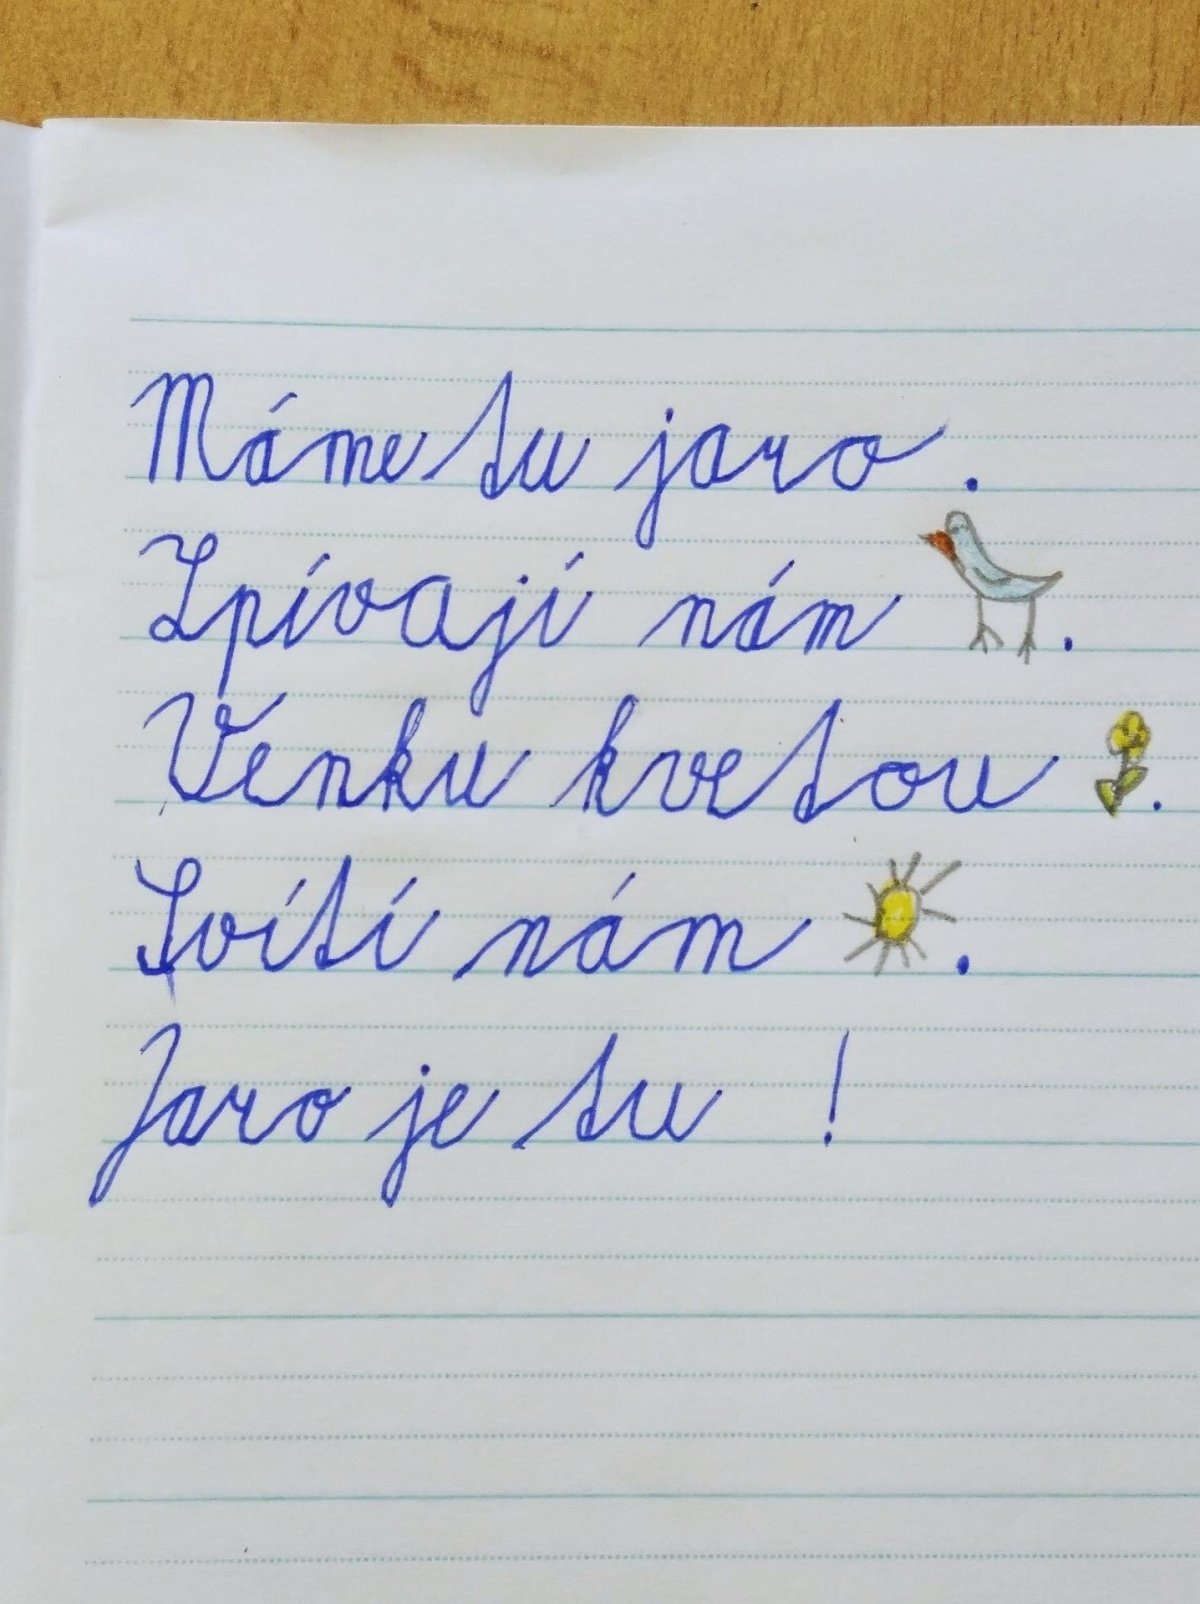 Máme tu jaro.
Zpívají nám .
Venku kvetou .
Svítí nám .
Jaro je tu !